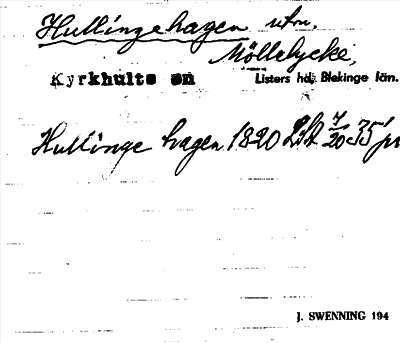 Hullingehagen utm.
Möllelycke,
Kyrkhults sn Listers hd, Blekinge län.
Hullinge hagen 1820 LSA 7/20 35
J. SWENNING 194